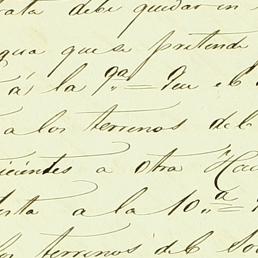 rata debe quedar en
agua que se pretende
á la 9.ª = Que el
a los terrenos del
cientes a otra Hac
esta a la 10.ª =
los terrenos del So